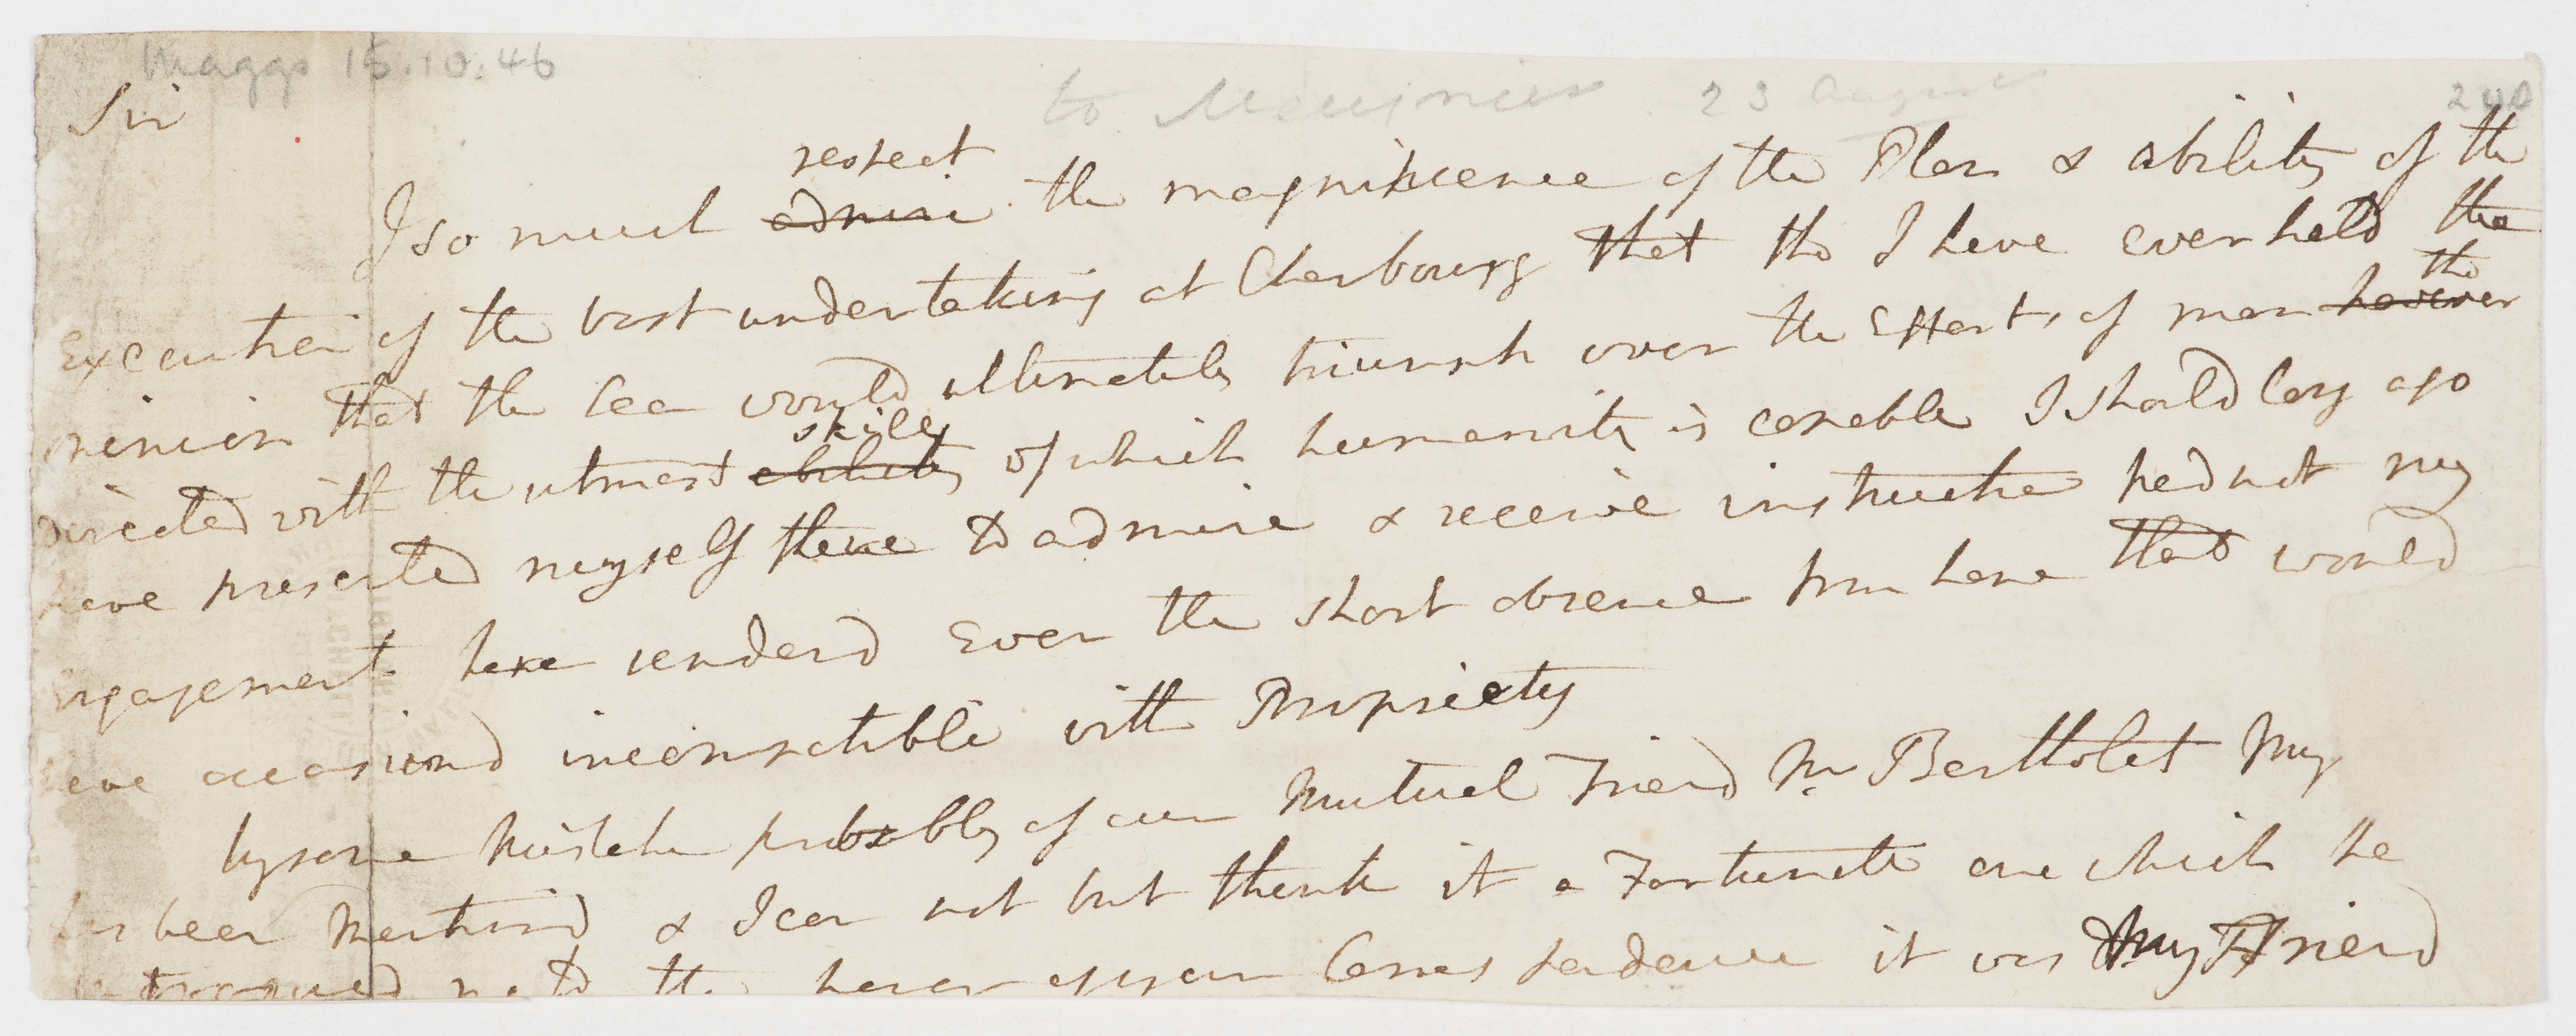 Maggs 15.10.46
to Meusnier 23 August
240
Sir
respect
I so much admire the magnificence of the Plan & ability of the
Execution of the vast undertaking at Cherbourg that tho I have ever held the
opinion that the Sea would ultimately triumph over the Efforts of man however
tho
directed with the utmost ability of which humanity is capable I should long ago
skill
have presented myself there to admire & receive instruction had not my
Engagements here renderd Even the short absence from hence that would
have occasiond incompatible with Propriety
by some Mistake probably of our Mutual Friend Mr Bertholet My
has been Mentiond & I can not but think it a Fortunate one which he
me to the honor of your Correspondence it was My Friend